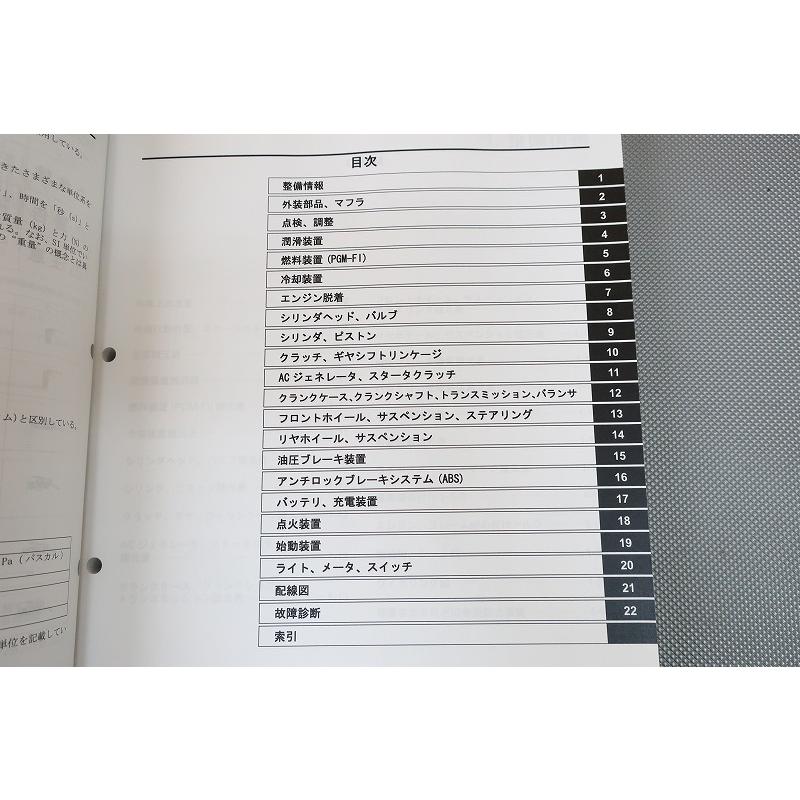 用している。
きたさまざまな単位系を
」、時間を「秒 (s)」と
質量 (kg) と力 (N) の
れる。なお、SI 単位でい
の“重量”の概念とは異
ム)と区別している。
Pa (パスカル)
単位を記載してい
目次
整備情報 1
外装部品、マフラ 2
点検、調整 3
潤滑装置 4
燃料装置 (PGM-FI) 5
冷却装置 6
エンジン脱着 7
シリンダヘッド、バルブ 8
シリンダ、ピストン 9
クラッチ、ギヤシフトリンケージ 10
AC ジェネレータ、スタータクラッチ 11
クランクケース、クランクシャフト、トランスミッション、バランサ 12
フロントホイール、サスペンション、ステアリング 13
リヤホイール、サスペンション 14
油圧ブレーキ装置 15
アンチロックブレーキシステム (ABS) 16
バッテリ、充電装置 17
点火装置 18
始動装置 19
ライト、メータ、スイッチ 20
配線図 21
故障診断 22
索引